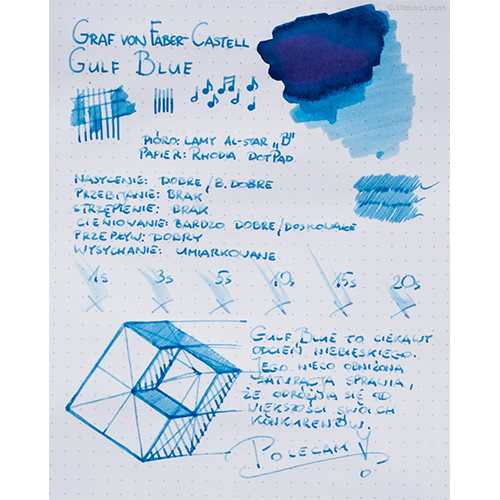 GRAF VON FABER-CASTELL
GULF BLUE
PIÓRO: LAMY AL-STAR „B"
PAPIER: RHODIA DOTPAD
NASYCENIE: DOBRE/B. DOBRE
PRZEBIJANIE: BRAK
STRZĘPIENIE: BRAK
CIENIOWANIE: BARDZO DOBRE/DOSKONAŁE
PRZEPŁYW: DOBRY
WYSYCHANIE: UMIARKOWANE
1s 3s 5s 10s 15s 20s
GULF BLUE TO CIEKAWY
ODCIEŃ NIEBIESKIEGO.
JEGO NIECO OBNIŻONA
SATURACJA SPRAWIA,
ŻE ODRÓŻNIA SIĘ OD
WIĘKSZOŚCI SWOICH
KONKURENTÓW.
POLECAM!